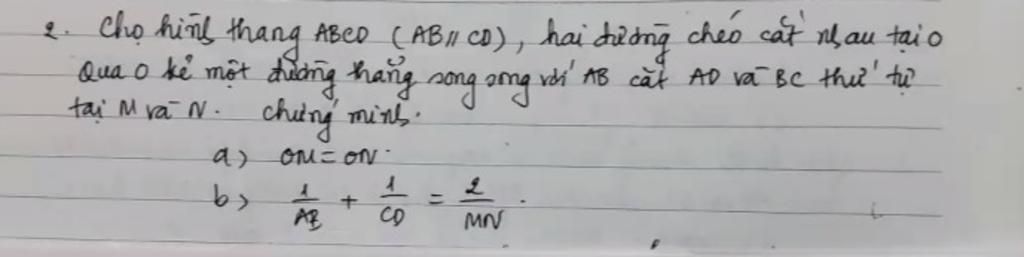 2. Cho hình thang ABCD (AB // CD), hai đường chéo cắt nhau tại O
Qua O kẻ một đường thẳng song song với AB cắt AD và BC thứ tự
tại M và N. Chứng minh.
a) OM = ON.
b) 1/AB + 1/CD = 2/MN.